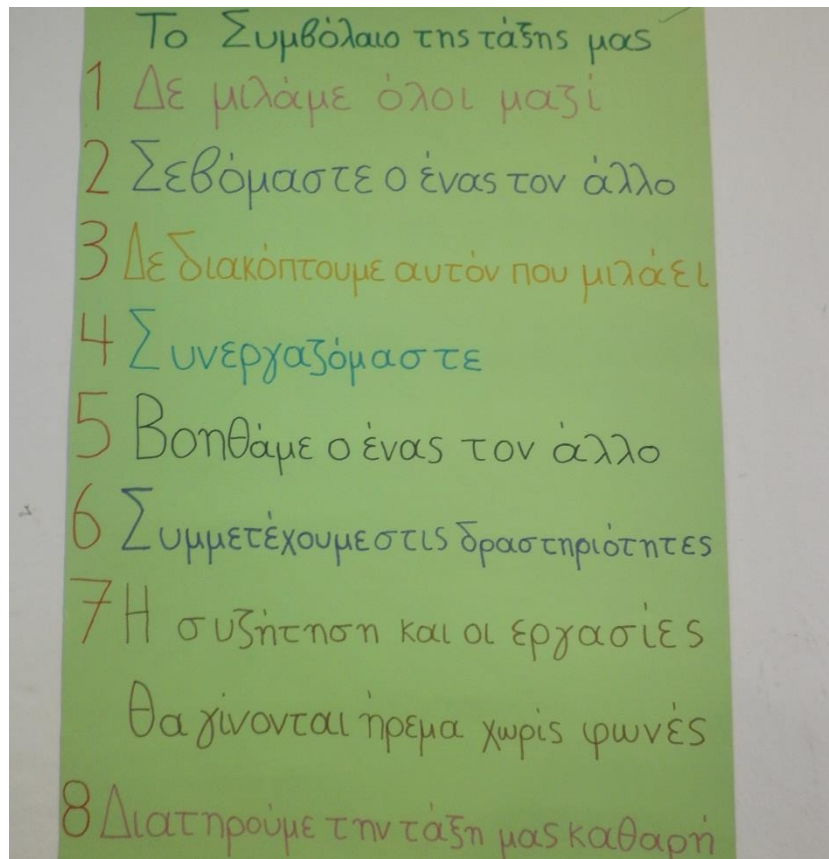 Το Συμβόλαιο της τάξης μας
1 Δε μιλάμε όλοι μαζί
2 Σεβόμαστε ο ένας τον άλλο
3 Δε διακόπτουμε αυτόν που μιλάει
4 Συνεργαζόμαστε
5 Βοηθάμε ο ένας τον άλλο
6 Συμμετέχουμε στις δραστηριότητες
7 Η συζήτηση και οι εργασίες
θα γίνονται ήρεμα χωρίς φωνές
8 Διατηρούμε την τάξη μας καθαρή